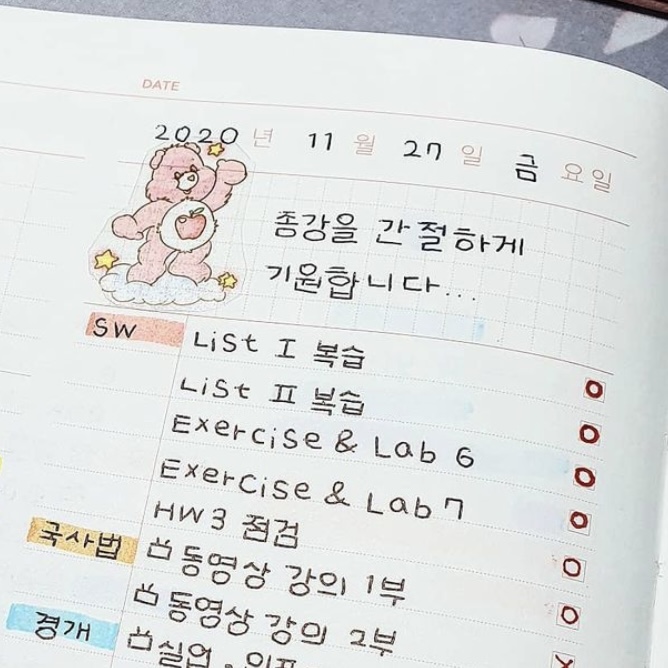 DATE
2020 년 11 월 27 일 금 요일
종강을 간절하게
기원합니다...
SW List I 복습 O
List II 복습 O
Exercise & Lab 6 O
Exercise & Lab 7 O
HW3 점검 O
국사법 동영상 강의 1부 O
동영상 강의 2부
경개 실업, 인프